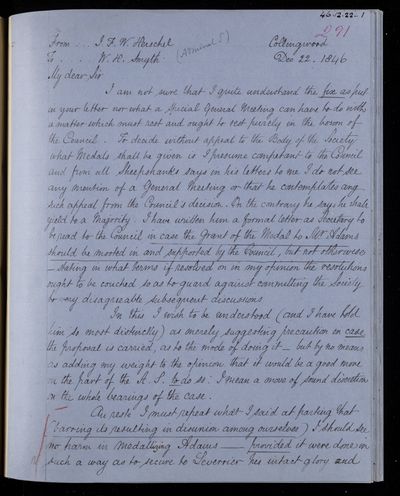 46-12-22-1
291
From ... J. F. W. Herschel Collingwood
To ..... W. H. Smyth (Admiral S) Dec 22. 1846
My dear Sir
I am not sure that I quite understand the fix as put
in your letter nor what a Special General Meeting can have to do with
a matter which must rest and ought to rest purely in the bosom of
the Council. To decide without appeal to the Body of the Society
what Medals shall be given is I presume competent to the Council
and from all Sheepshanks says in his letters to me I do not see
any mention of a General Meeting or that he contemplates any
such appeal from the Council's decision. On the contrary he says he shall
yield to a Majority. I have written him a formal letter as Secretary to
be read to the Council in case the Grant of the Medal to Mr Adams
should be mooted in and supported by the Council, but not otherwise
— stating in what terms if resolved on in my opinion the resolutions
ought to be couched so as to guard against committing the Society
to very disagreeable subsequent discussions
In this I wish to be understood (and I have told
him so most distinctly) as merely suggesting precaution in case
the proposal is carried, as to the mode of doing it — but by no means
as adding my weight to the opinion that it would be a good move
on the part of the A. S. to do so: I mean a move of sound discretion
on the whole bearings of the case.
As rests I must repeat what I said at parting that
(barring its resulting in disunion among ourselves) I should see
no harm in medallizing Adams — provided it were done in
such a way as to secure to Leverrier his intact glory and